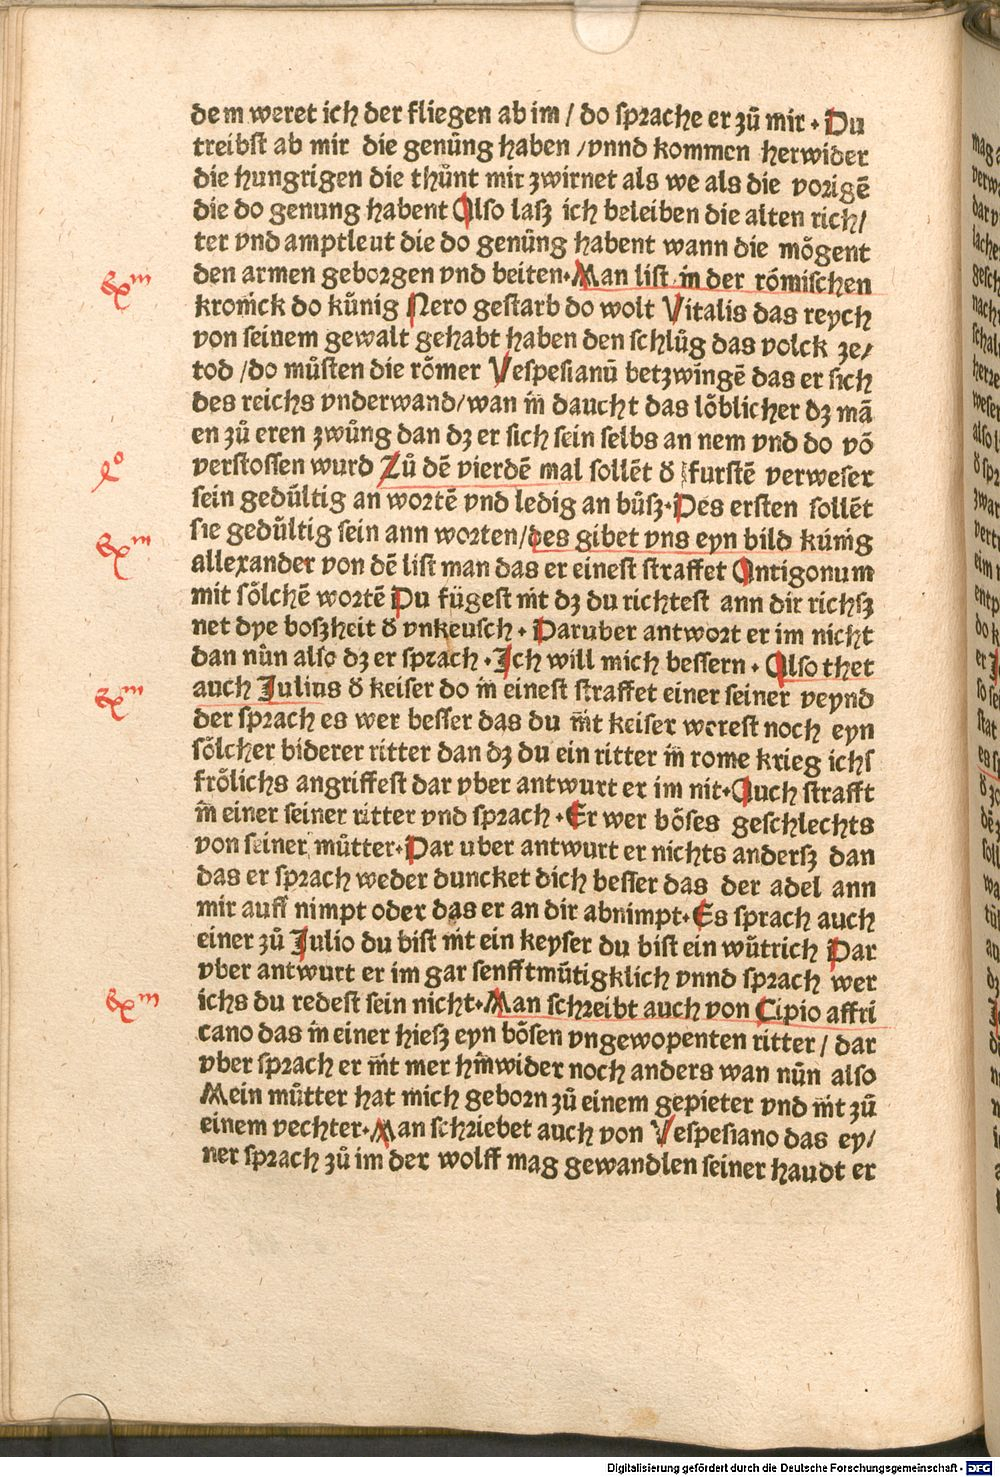 dem weret ich der fliegen ab im / do sprache er zů mir · Du
treibst ab mir die genůng haben / vnnd kommen herwider
die hungrigen die thůnt mir zwirnet als we als die vorigē
die do genung habent Also lasz ich beleiben die alten rich/
ter vnd amptleut die do genůng habent wann die mőgent
den armen geborgen vnd beiten · Man list in der rőmischen
kronick do kůnig Nero gestarb do wolt Vitalis das reych
von seinem gewalt gehabt haben den schlůg das volck ze/
tod / do můsten die rőmer Vespesianū betzwīngē das er sich
des reichs vnderwand / wan in daucht das lőblicher dz mā
en zů eren zwůng dan dz er sich sein selbs an nem vnd do vō
verstossen wurd Zů dē vierdē mal sollēt ď furstē verweser
sein gedůltig an wortē vnd ledig an bůsz · Des ersten sollēt
sie gedůltig sein ann worten / des gibet vns eyn bild kůnig
allexander von dē list man das er einest straffet Antigonum
mit sőlchē wortē Du fůgest nit dz du richtest ann dir richsz
net dye boszheit ď vnkeusch · Daruber antwort er im nicht
dan nůn also dz er sprach · Ich will mich bessern · Also thet
auch Julius ď keiser do in einest straffet einer seiner veynd
der sprach es wer besser das du nit keiser werest noch eyn
sőlcher biderer ritter dan dz du ein ritter in rome krieg ichs
frőlichs angriffest dar vber antwurt er im nit · Auch strafft
in einer seiner ritter vnd sprach · Er wer bőses geschlechts
von seiner můtter · Dar uber antwurt er nichts andersz dan
das er sprach weder duncket dich besser das der adel ann
mir auff nimpt oder das er an dir abnimpt · Es sprach auch
einer zů Julio du bist nit ein keyser du bist ein wůtrich Dar
vber antwurt er im gar senfftmůtigklich vnnd sprach wer
ichs du redest sein nicht · Man schreibt auch von Cipio affri
cano das in einer hiesz eyn bősen vngewopenten ritter / dar
vber sprach er nit mer hinwider noch anders wan nůn also
Mein můtter hat mich geborn zů einem gepieter vnd nit zů
einem vechter · Man schriebet auch von Vespesiano das ey/
ner sprach zů im der wolff mag gewandlen seiner haudt er
Exm
Exm
Exm
Exm
Digitalisierung gefördert durch die Deutsche Forschungsgemeinschaft - DFG